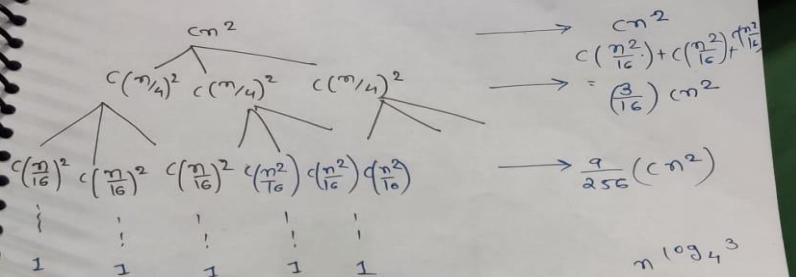 cn² → cn²
c(n²/16) + c(n²/16) + cn²/16
c(n/4)² c(n/4)² c(n/4)² → = (3/16) cn²
c(n/16)² c(n/16)² c(n/16)² c(n²/16) c(n²/16) c(n²/10) → 9/256 (cn²)
1 1 1 1 1
n log₄ 3